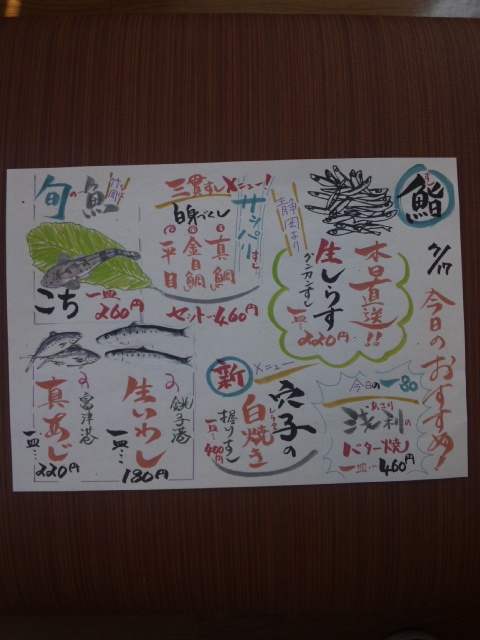 鮨
すし
7/17
今日のおすすめ!
静岡より
本日直送!!
生しらす
グンカンずし
一皿…220円
今日の一品
浅利の
あさり
バター焼
一皿…460円
三貫すしメニュー!
サッパリ
白身づくし
真鯛
金目鯛
平目
セット…460円
新メニュー
穴子の
白焼き
しらやき
握りずし
一皿…400円
旬の魚
こち
一皿…260円
銚子港の
生いわし
一皿…180円
富津港の
真あじ
一皿…220円